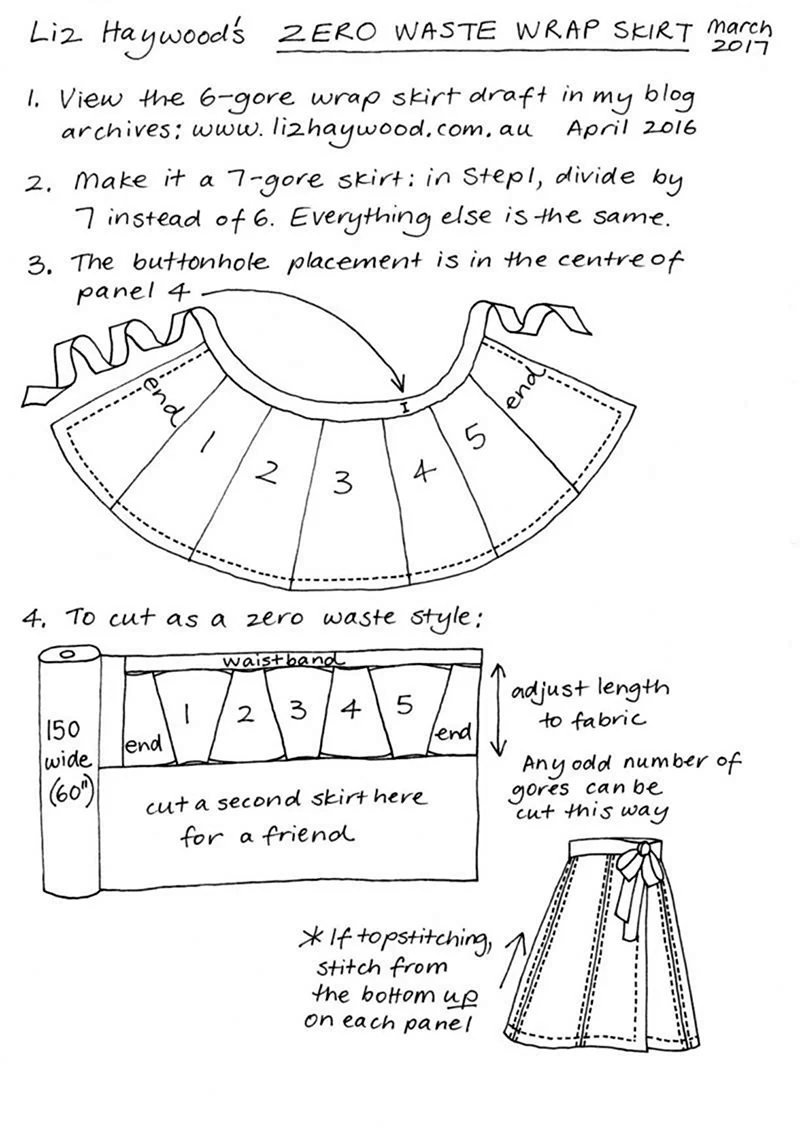 Liz Haywood's ZERO WASTE WRAP SKIRT March 2017
1. View the 6-gore wrap skirt draft in my blog
archives: www.lizhaywood.com.au April 2016
2. Make it a 7-gore skirt: in Step1, divide by
7 instead of 6. Everything else is the same.
3. The buttonhole placement is in the centre of
panel 4
end 1 2 3 4 5 end
4. To cut as a zero waste style:
waistband
150
wide
(60")
end 1 2 3 4 5 end
adjust length
to fabric
Any odd number of
gores can be
cut this way
cut a second skirt here
for a friend
* If topstitching,
stitch from
the bottom up
on each panel